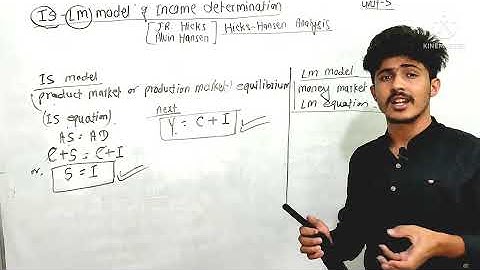 IS-LM model of Income determination
UNIT-5
J.R. Hicks
Alvin Hansen
Hicks-Hansen Analysis
KINEMASTER
IS model
(product market or production market) equilibrium
(IS equation)
AS = AD
C+S = C+I
or, S = I
next
Y = C + I
Lm model
money market
Lm equation